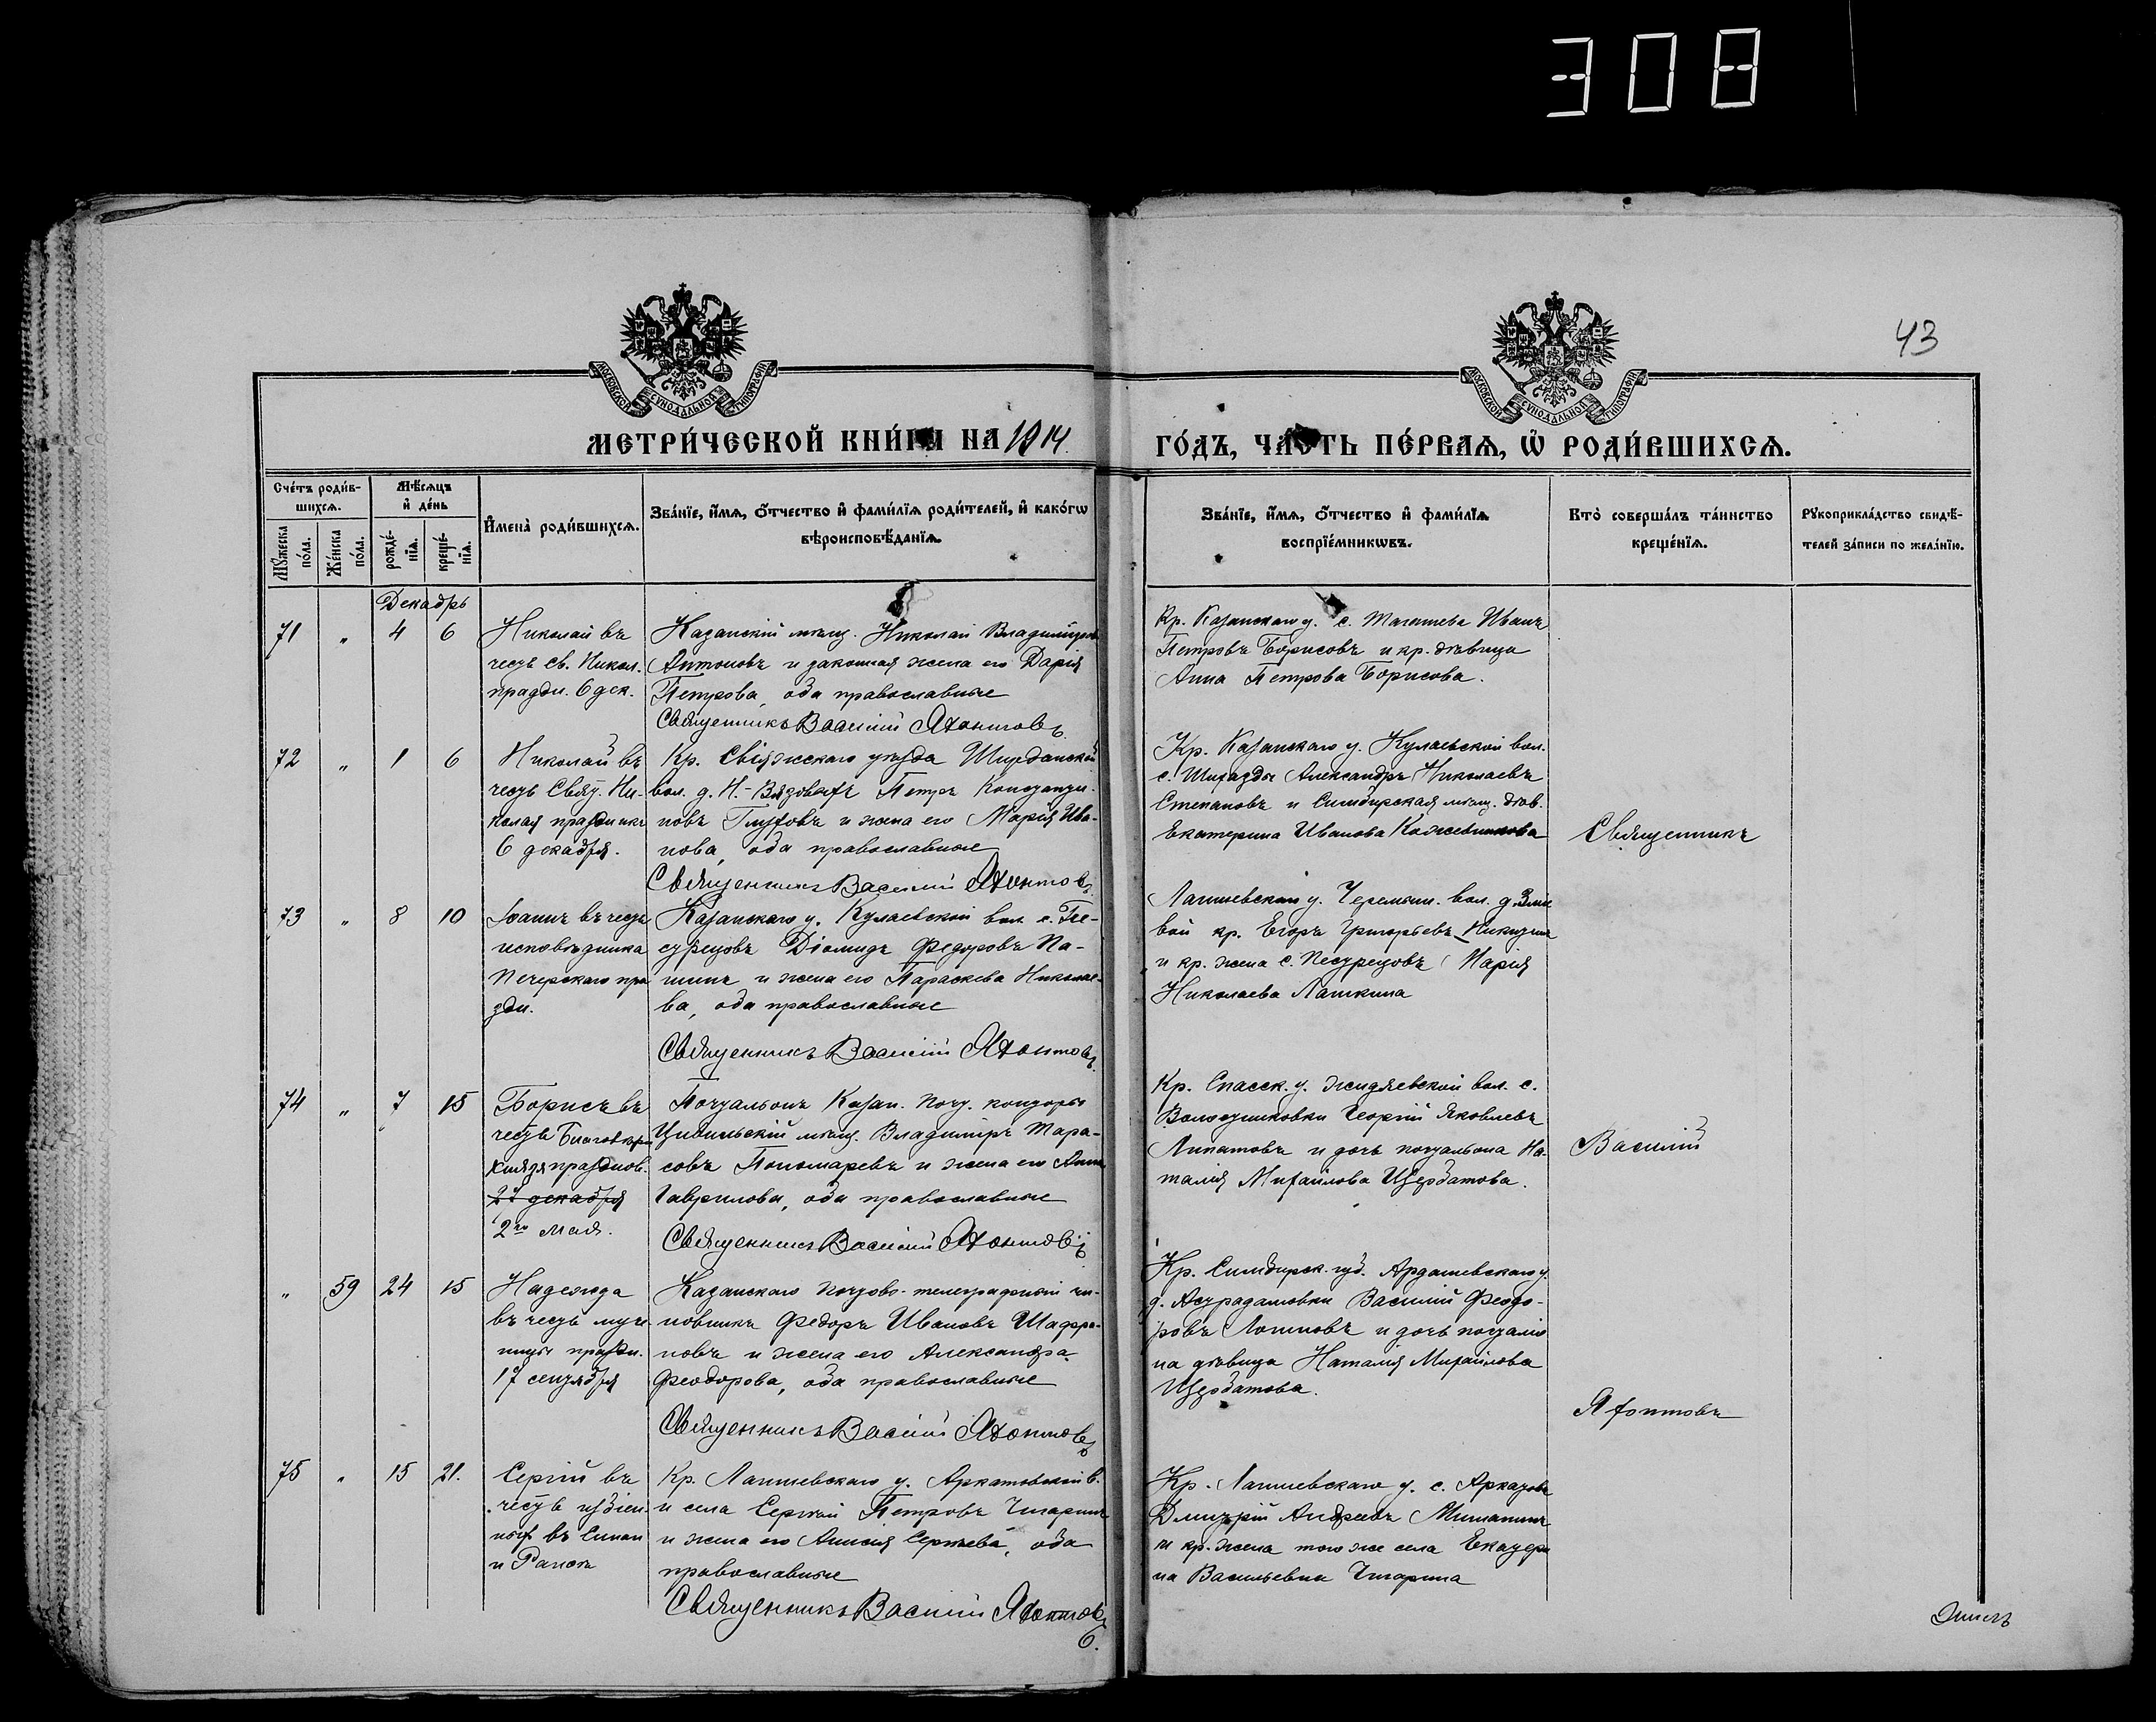 308
43
МОСКОВСКОЙ СѴНОДАЛЬНОЙ ТИПОГРАФІИ
МОСКОВСКОЙ СѴНОДАЛЬНОЙ ТИПОГРАФІИ
МЕТРИ́ЧЕСКОЙ КНИ́ГИ НА 1914.
ГО́ДЪ, ЧА́СТЬ ПЕ́РВАѦ, Ѡ҆ РОДИ́ВШИХСѦ.
Сче́тъ роди́в-
шихсѧ.
Мѣ́сѧцъ
и҆ де́нь
Мꙋ́жеска по́ла.
Же́нска по́ла.
рожде́-нїѧ.
креще́-нїѧ.
И҆мена̀ роди́вшихсѧ.
Зва́нїе, и҆́мѧ, ѻ҆́тчество и҆ фами́лїѧ роди́телей, и҆ како́гѡ
вѣроисповѣ́данїѧ.
Зва́нїе, и҆́мѧ, ѻ҆́тчество и҆ фами́лїѧ
воспрїе́мникѡвъ.
Кто̀ соверша́лъ та́инство
креще́нїѧ.
Рꙋкоприкла́дство свидѣ́-
телей за́писи по жела́нїю.
Декабрь
71 " 4 6
Николай въ
честь св. Никол.
праздн. 6 дек.
Казанскій мѣщ. Николай Владиміров
Антоновъ и законная жена его Дарія
Петрова, оба православные
Священникъ Василій Яхонтовъ.
Кр. Казанскаго у. с. Иванъ
Петровъ Борисовъ и кр. дѣвица
Анна Петрова Борисова.
72 " 1 6
Николай въ
честь Свят. Ни-
колая праздникъ
6 декабря.
Кр. Свіяжскаго уѣзда Ширданской
вол. д. Н.-Вязовыхъ Петръ Константи-
новъ Глуховъ и жена его Марія Ива-
нова, оба православные
Священникъ Василій Яхонтовъ.
Кр. Казанскаго у. Кулаевской вол.
с. Шигазды Александръ Николаевъ
Степановъ и Симбирская мѣщ. дѣв.
Екатерина Иванова Кожевникова
Священникъ
73 " 8 10
Іоаннъ въ честь
исповѣдника
Печерскаго пра
здн.
Казанскаго у. Кулаевской вол. с. Пе-
стрецовъ Діомидъ Федоровъ Па-
шинъ и жена его Параскева Николае-
ва, оба православные
Священникъ Василій Яхонтовъ.
Лаишевскаго у. Черемыш. вол. д.
вой кр. Егоръ Григорьевъ Никитинъ
и кр. жена с. Пестрецовъ Марія
Николаева Лашкина
74 " 7 15
Борисъ въ
честь Благовѣрн
князя празднов.
27 декабря
2го мая.
Почтальонъ Казан. Почт. конторы
Цивильскій мѣщ. Владиміръ Тара-
совъ Пономаревъ и жена его Анна
Гаврилова, оба православные
Священникъ Василій Яхонтовъ
Кр. Спасск. у. Жидяевской вол. с.
Волостниковки Георгій Яковлевъ
Липатовъ и дочь почтальона На-
талія Михайлова Щербатова.
Василій
" 59 24 15
Надежда
въ честь муче
ницы праздн.
17 сентября
Казанскаго почтово-телеграфный чи-
новникъ Федоръ Ивановъ Шафра-
новъ и жена его Александра
Феодорова, оба православные
Священникъ Василій Яхонтовъ
Кр. Симбирск. губ. Ардатовскаго у.
д. Астрадамовки Василій Феодо-
ровъ Логиновъ и дочь почталіо
на дѣвица Наталія Михайлова
Щербатова.
Яхонтовъ
75 " 15 21.
Сергій въ
честь избіен-
ныхъ въ Синаи
и Раифѣ
Кр. Лаишевскаго у. Аркатовской в.
и села Сергѣй Петровъ Чигаринъ
и жена его Анисія Сергѣева, оба
православные
Священникъ Василій Яхонтовъ
6.
Кр. Лаишевскаго у. с. Аркатова
Дмитрій Андреевъ Мишанинъ
и кр. жена того же села Екатери
на Васильевна Чигарина